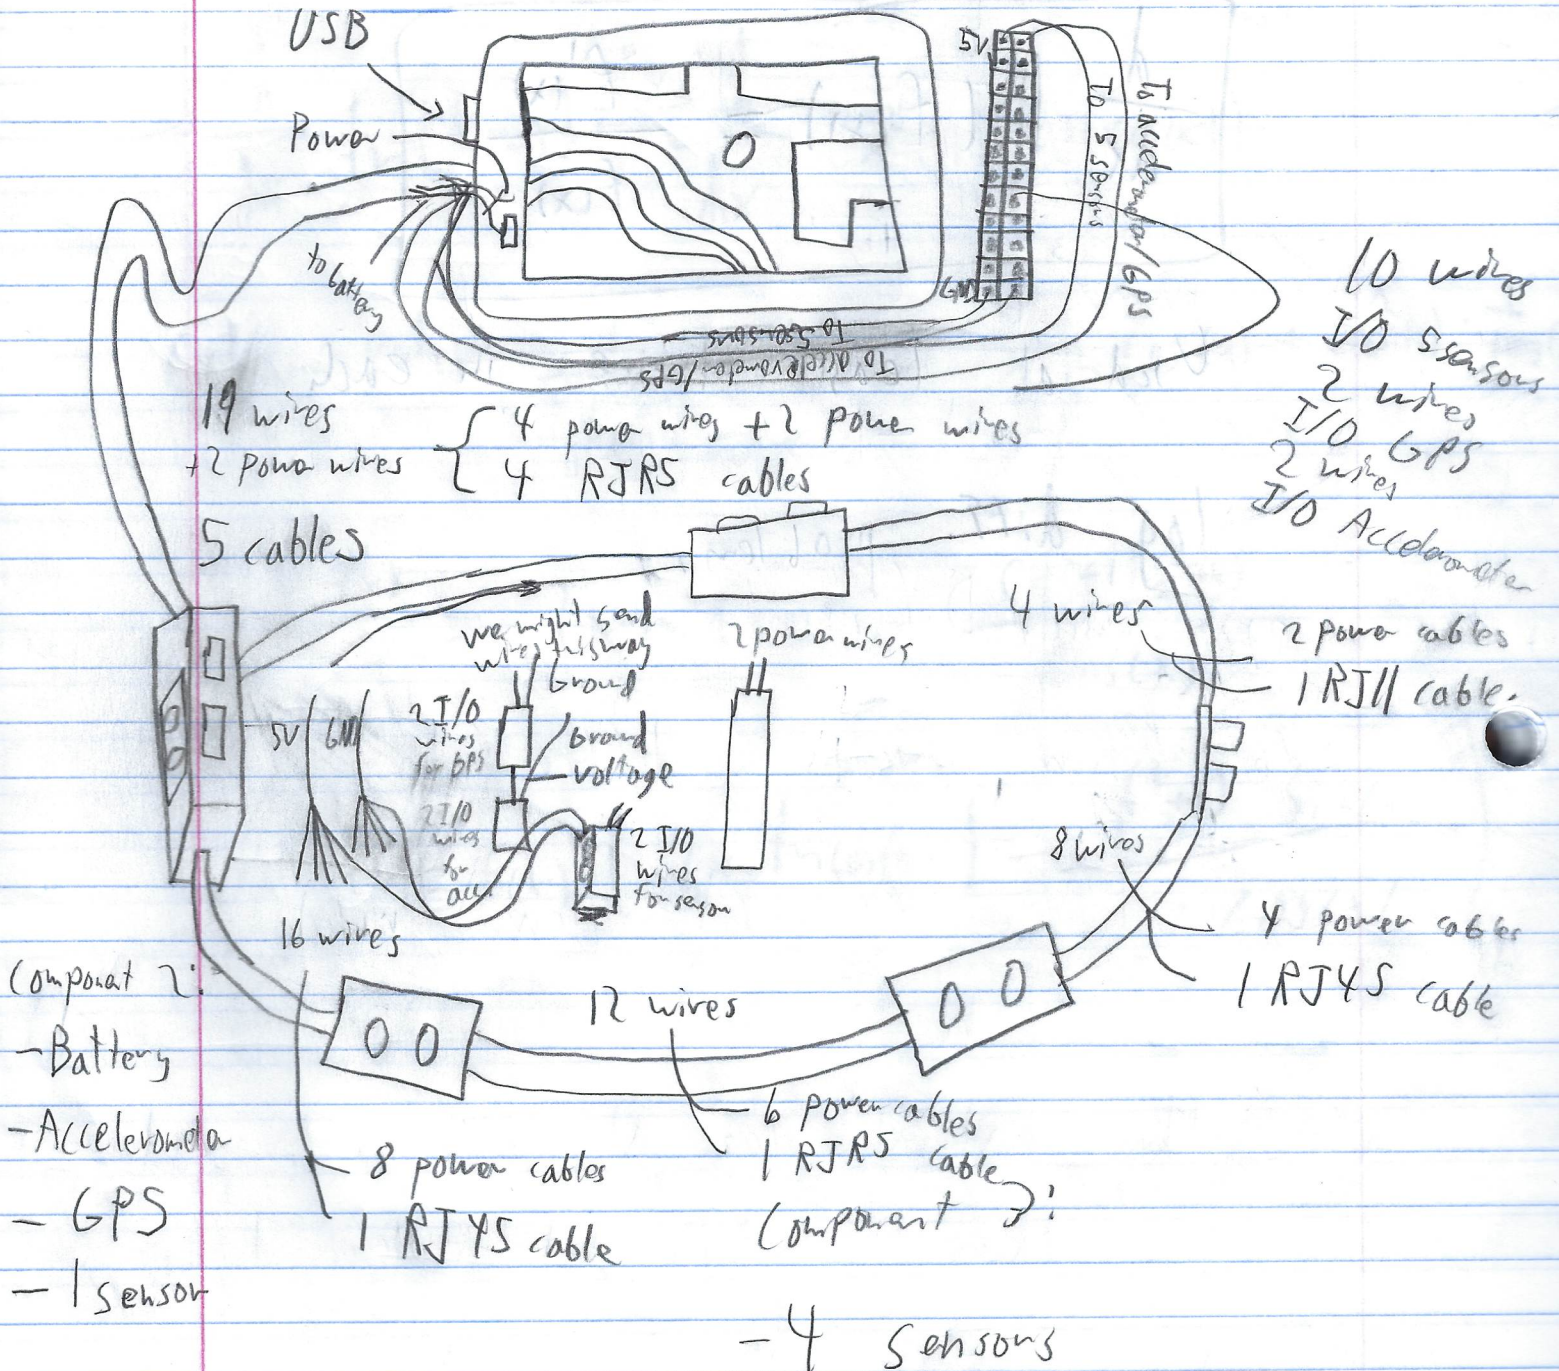 USB
Power
5V
GND
To 5 sensors
To accelerometer/GPS
to battery
To 5 sensors
To accelerometer/GPS
10 wires
I/O 5 sensors
2 wires
I/O GPS
2 wires
I/O Accelerometer
19 wires
+2 power wires
4 power wires + 2 power wires
4 RJR5 cables
5 cables
we might send
wires this way
2 power wires
4 wires
2 power cables
1 RJ11 cable.
5V
GND
Ground
2 I/O
wires
for GPS
Ground
voltage
2 I/O
wires
for
acc.
2 I/O
wires
for sensor
8 wires
4 power cables
1 RJ45 cable
16 wires
12 wires
Componant 2:
- Battery
- Accelerometer
- GPS
- 1 sensor
8 power cables
1 RJ45 cable
6 power cables
1 RJR5 cable
Componant 3:
- 4 sensors